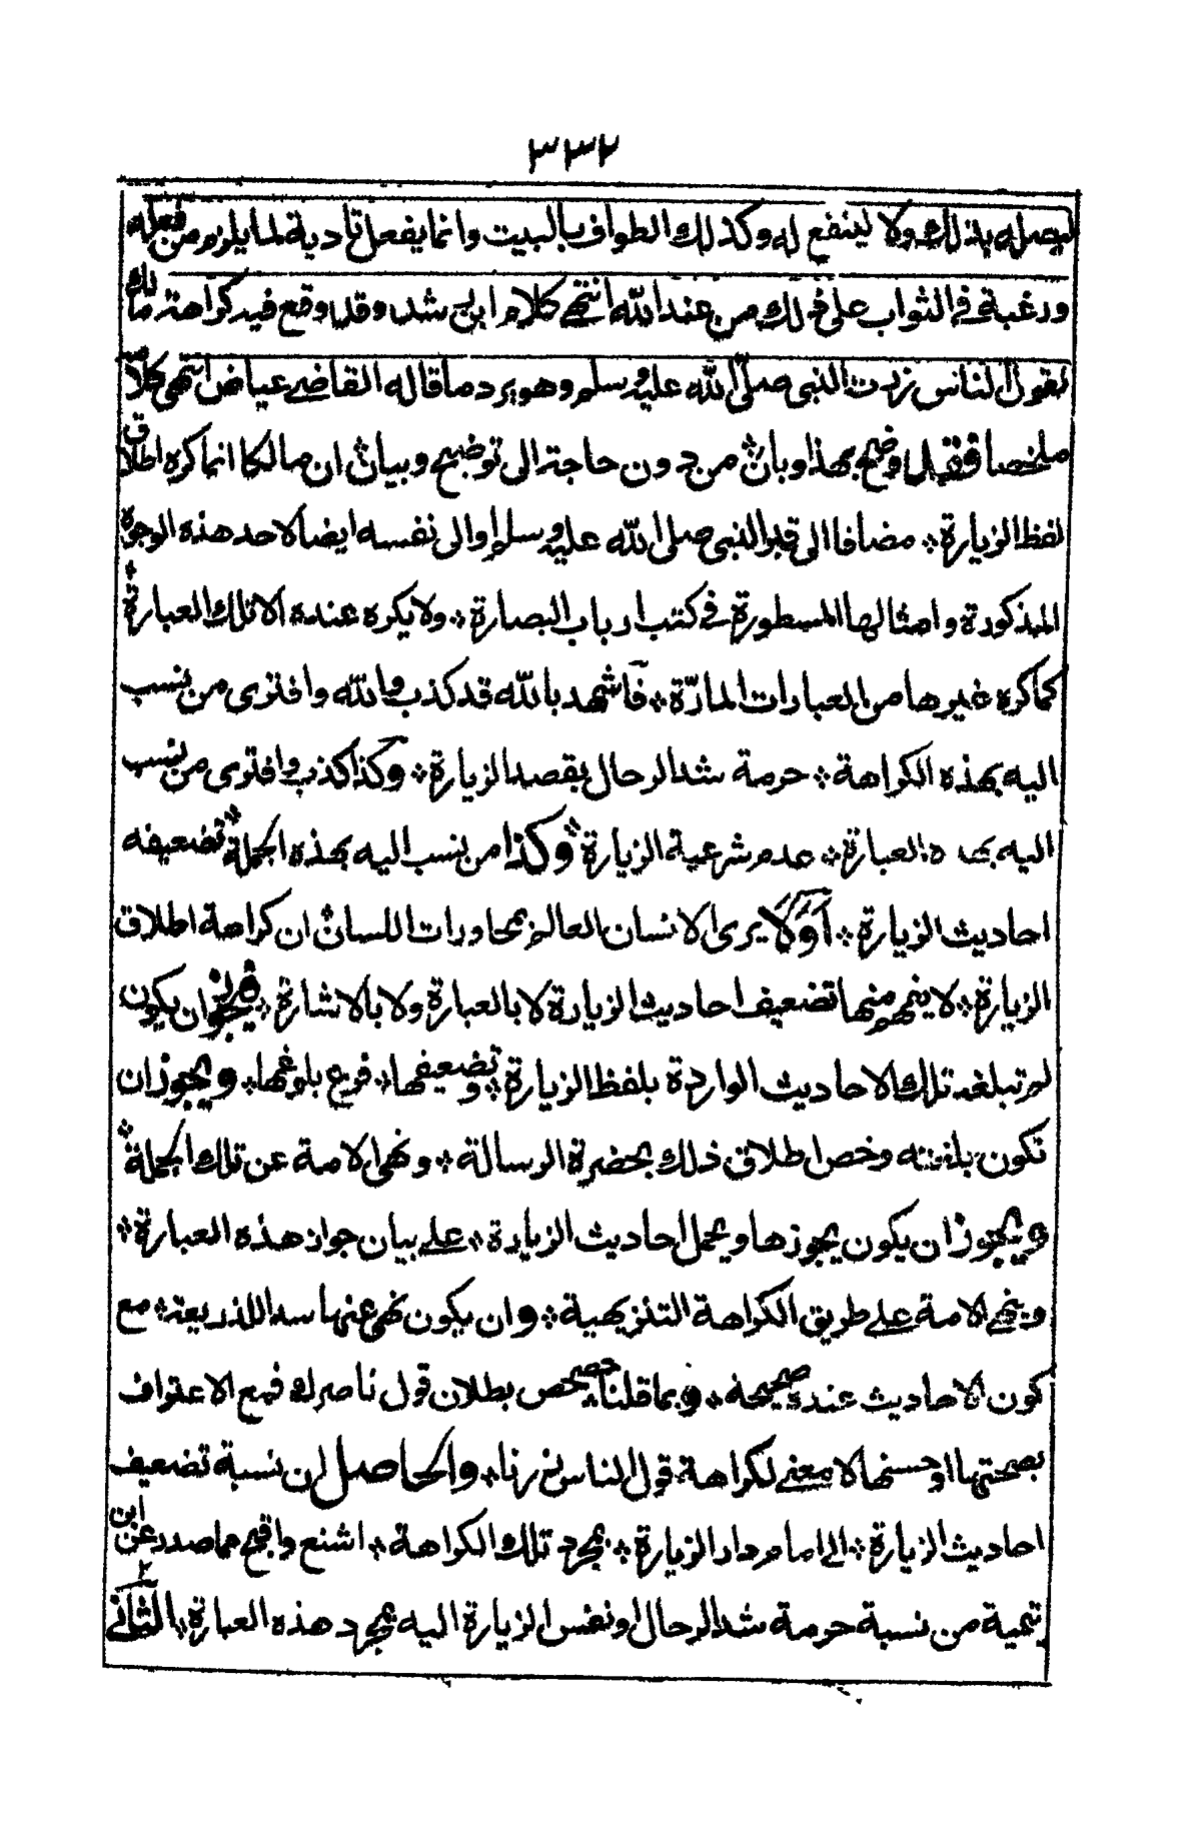 ٣٣٢
ليصله بذلك ولا لينفع له وكذلك الطواف بالبيت وانما يفعل تادية لما يلزم من فعله
ورغبة فى الثواب على ذلك من عند الله انتهى كلام ابن رشد وقد وقع فيه كراهة مالك
لقول الناس زرت النبى صلى الله عليه وسلم وهو يرد ما قاله القاضى عياض انتهى كلامه
ملخصا فقد وضح بهذا وبان ٭ من دون حاجة الى توضيح وبيان ٭ ان مالكا انما كره اطلاق
لفظ الزيارة ٭ مضافا الى قبر النبى صلى الله عليه وسلم او الى نفسه ايضا لاحد هذه الوجوه
المذكورة وامثالها المسطورة فى كتب ارباب البصارة ٭ ولا يكره عنده الا تلك العبارة ٭
كما كره غيرها من العبارات المارّة ٭ فاشهد بالله قد كذب والله وافترى من ينسب
اليه بهذه الكراهة ٭ حرمة شد الرحال بقصد الزيارة ٭ وكذا كذب وافترى من ينسب
اليه بهذه العبارة ٭ عدم شرعية الزيارة ٭ وكذا من ينسب اليه بهذه الجملة ٭ تضعيفه
احاديث الزيارة ٭ اَوَلَا يرى الانسان العالم بمحاورات اللسان ٭ ان كراهة اطلاق
الزيارة ٭ لا يفهم منها تضعيف احاديث الزيارة لا بالعبارة ولا بالاشارة ٭ فيجوز ان يكون
لم تبلغه تلك الاحاديث الواردة بلفظ الزيارة ٭ وتضعيفها ٭ فرع بلوغها ٭ ويجوز ان
تكون بلغته وخص اطلاق ذلك بحضرة الرسالة ٭ ونهى الامة عن تلك الجملة ٭
ويجوز ان يكون يجوزها ويحمل احاديث الزيارة ٭ على بيان جواز هذه العبارة ٭
وينهى الامة على طريق الكراهة التنزيهية ٭ وان يكون نهى عنها سدا للذريعة ٭ مع
كون الاحاديث عنده صحيحة ٭ وبما قلنا حصحص بطلان قول ناصرك فمع الاعتراف
بصحتها او حسنها لا معنى لكراهة قول الناس زرنا ٭ والحاصل ان نسبة تضعيف
احاديث الزيارة ٭ الى امام دار الزيارة ٭ بمجرد تلك الكراهة ٭ اشنع واقبح مما صدر عن ابن
تيمية من نسبة حرمة شد الرحال او نفس الزيارة اليه بمجرد هذه العبارة ٭ الثانى